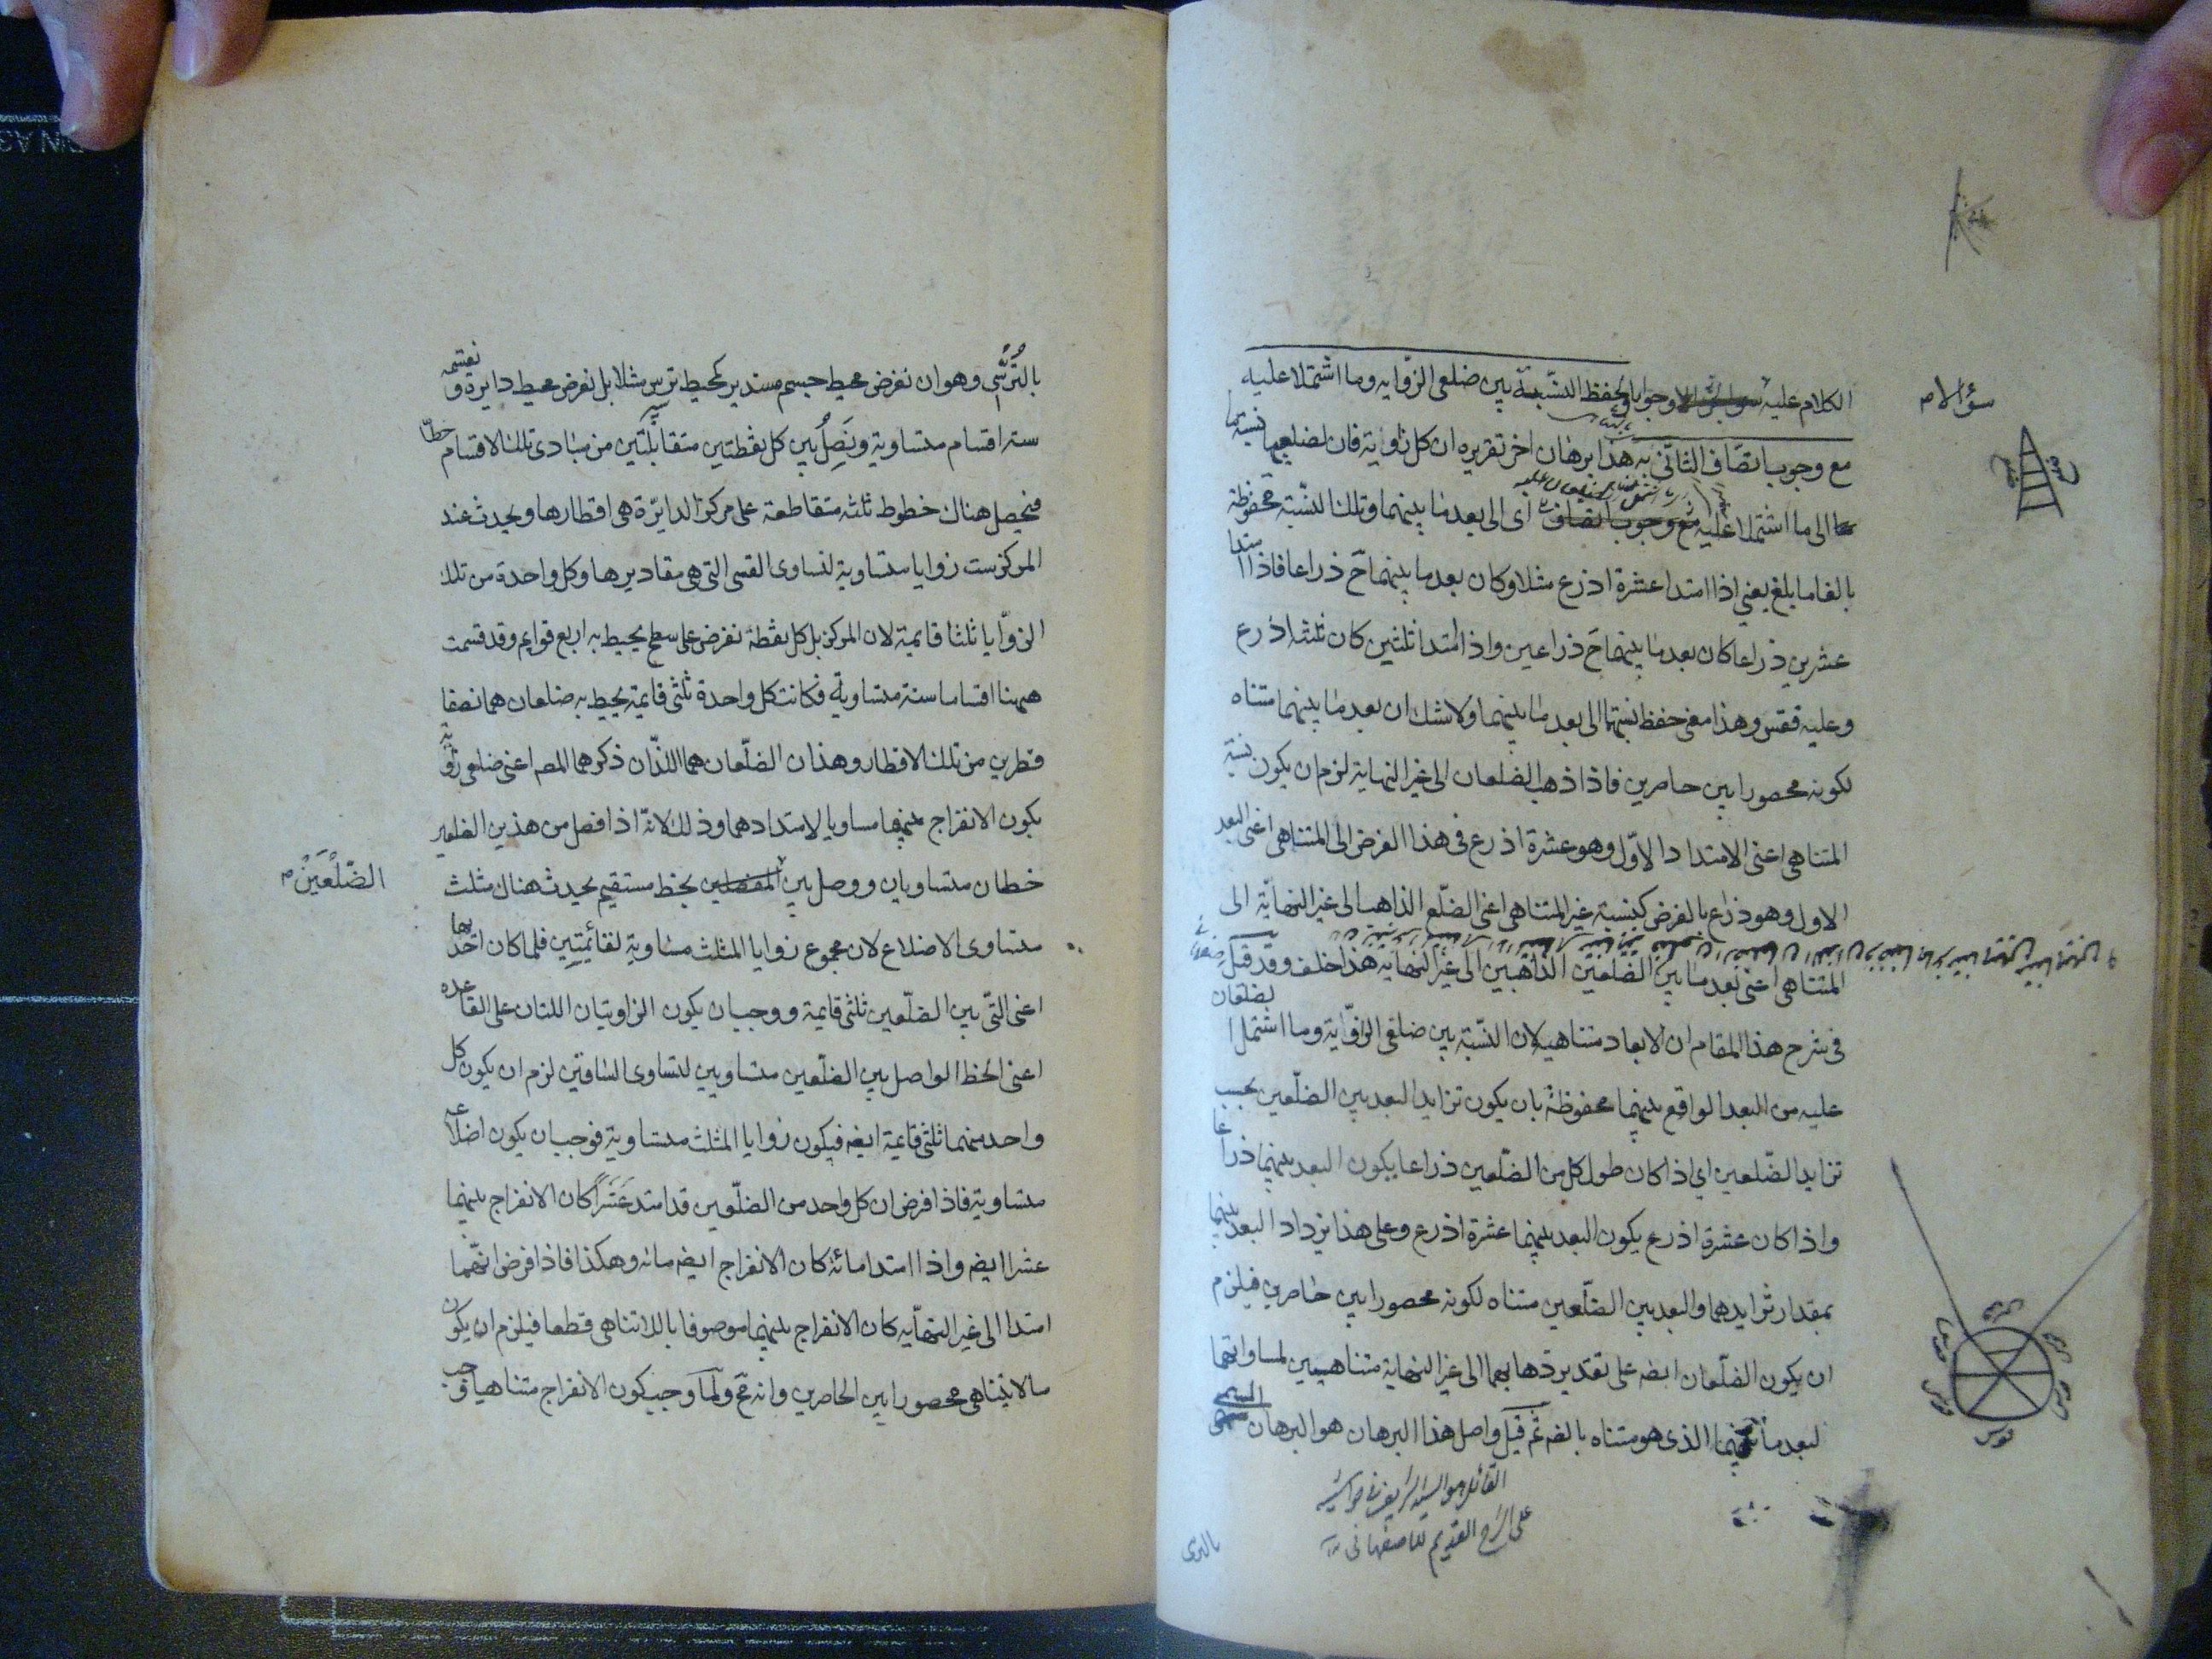 الكلام عليه وجوابا ولحفظ النسبة بين ضلعى الزوايه وما اشتملا عليه
سؤالا م
مع وجوب اتصاف الثانى به هذا برهان اخر تقريره ان كل زاوية فان لضلعيها نسبة ما
الى ما اشتملا عليه اى الى بعد ما بينهما وتلك النسبة محفوظة
بالغا ما بلغ يعنى اذا امتدا عشرة اذرع مثلا وكان بعد ما بينهما ح ذراعا فاذا امتدا
عشرين ذراعا كان بعد ما بينهما ح ذراعين واذا امتدا ثلثين كان ثلثه اذرع
وعليه فقس وهذا معنى حفظ نسبتهما الى بعد ما بينهما ولا شك ان بعد ما بينهما متناه
لكونه محصورا بين حاصرين فاذا ذهب الضلعان الى غير النهاية لزم ان يكون نسبة
المتناهى اعنى الامتداد الاول وهو عشرة اذرع فى هذا الفرض الى المتناهى اعنى البعد
الاول وهو ذراع بالفرض كنسبة غير المتناهى اعنى الضلع الذاهب الى غير النهاية الى
المتناهى اعنى بعد ما بين الضلعين الذاهبين الى غير النهايه هذا خلف وقد قيل
فى شرح هذا المقام ان الابعاد متناهيه لان النسبة بين ضلعى الزواية وما اشتمل الضلعان
عليه من البعد الواقع بينهما محفوظة بان يكون تزايد البعد بين الضلعين بحسب
تزايد الضلعين اى اذا كان طول كل من الضلعين ذراعا يكون البعد بينهما ذراعا
واذا كان عشرة اذرع يكون البعد بينهما عشرة اذرع وعلى هذا يزداد البعد بينهما
بمقدار تزايدهما والبعد بين الضلعين متناه لكونه محصورا بين حاصرين فيلزم
ان يكون الضلعان ايضه على تقدير ذهابهما الى غير النهاية متناهيين لمساواتهما
لبعد ما بينهما الذى هو متناه بالضه ثم قيل واصل هذا البرهان هو البرهان المسمى
القائل هو السيد الشريف فى حواشيه
على الشرح القديم للاصفهانى
بالترسى
قوس
بالتُرسى وهو ان نفرض محيط جسم مستدير كمحيط ترس مثلا بل نفرض محيط دايرة ونقسمه
ستة اقسام متساوية ونَصِلُ بين كل نقطتين متقابلتين من مبادى تلك الاقسام خطا
فيحصل هناك خطوط ثلثه متقاطعة على مركز الدايرة هى اقطارها ويحدث عند
المركز ست زوايا متساوية لتساوى القسى التى هى مقاديرها وكل واحدة من تلك
الزوايا ثلثا قايمة لان المركز بل كل نقطة نفرض على سطح يحيط به اربع قوايم وقد قسمت
ههنا اقساما ستة متساوية فكانت كل واحدة ثلثى قايمة يحيط به ضلعان هما نصفا
قطرين من تلك الاقطار وهذان الضلعان هما اللذان ذكرهما المصـ اعنى ضلعى زاوية
يكون الانفراج بينهما مساويا لامتدادهما وذلك لانه اذا فصل من هذين الضلعين
خطان متساويان ووصل بين بخط مستقيم يحدث هناك مثلث
الضّلْعَيْن م
متساوى الاضلاع لان مجموع زوايا المثلث مساوية لقائمتين فلما كان احدٰها
اعنى التى بين الضلعين ثلثى قايمة ووجب ان يكون الزاويتان اللتان على القاعده
اعنى الخط الواصل بين الضلعين متساويين لتساوى الساقين لزم ان يكون كل
واحد منهما ثلثى قايمة ايضه فيكون زوايا المثلث متساوية فوجب ان يكون اضلاعه
متساوية فاذا فرض ان كل واحد من الضلعين قد امتد عَشْراً كان الانفراج بينهما
عشرا ايضه واذا امتدا مائة كان الانفراج ايضه مائه وهكذا فاذا فرض انهما
امتدا الى غير النهايه كان الانفراج بينهما موصوفا باللاتناهى قطعا فيلزم ان يكون
ما لا يتناهى محصورا بين الحاصرين وانه مح ولما وجب كون الانفراج متناهيا وجب